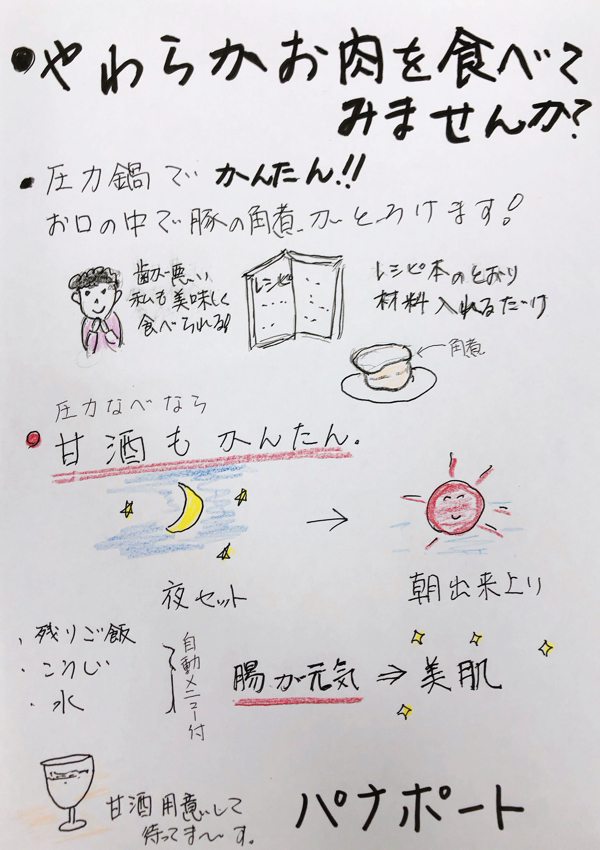 やわらかお肉を食べて
みませんか?
圧力鍋でかんたん!!
お口の中で豚の角煮がとろけます!
歯が悪い
私も美味しく
食べられる!
レシピ
レシピ本のとおり
材料入れるだけ
角煮
圧力なべなら
甘酒もかんたん.
夜セット
朝出来上り
・残りご飯
・こうじ
・水
自動メニュー付
腸が元気⇒美肌
甘酒用意して
待ってま〜す。
パナポート